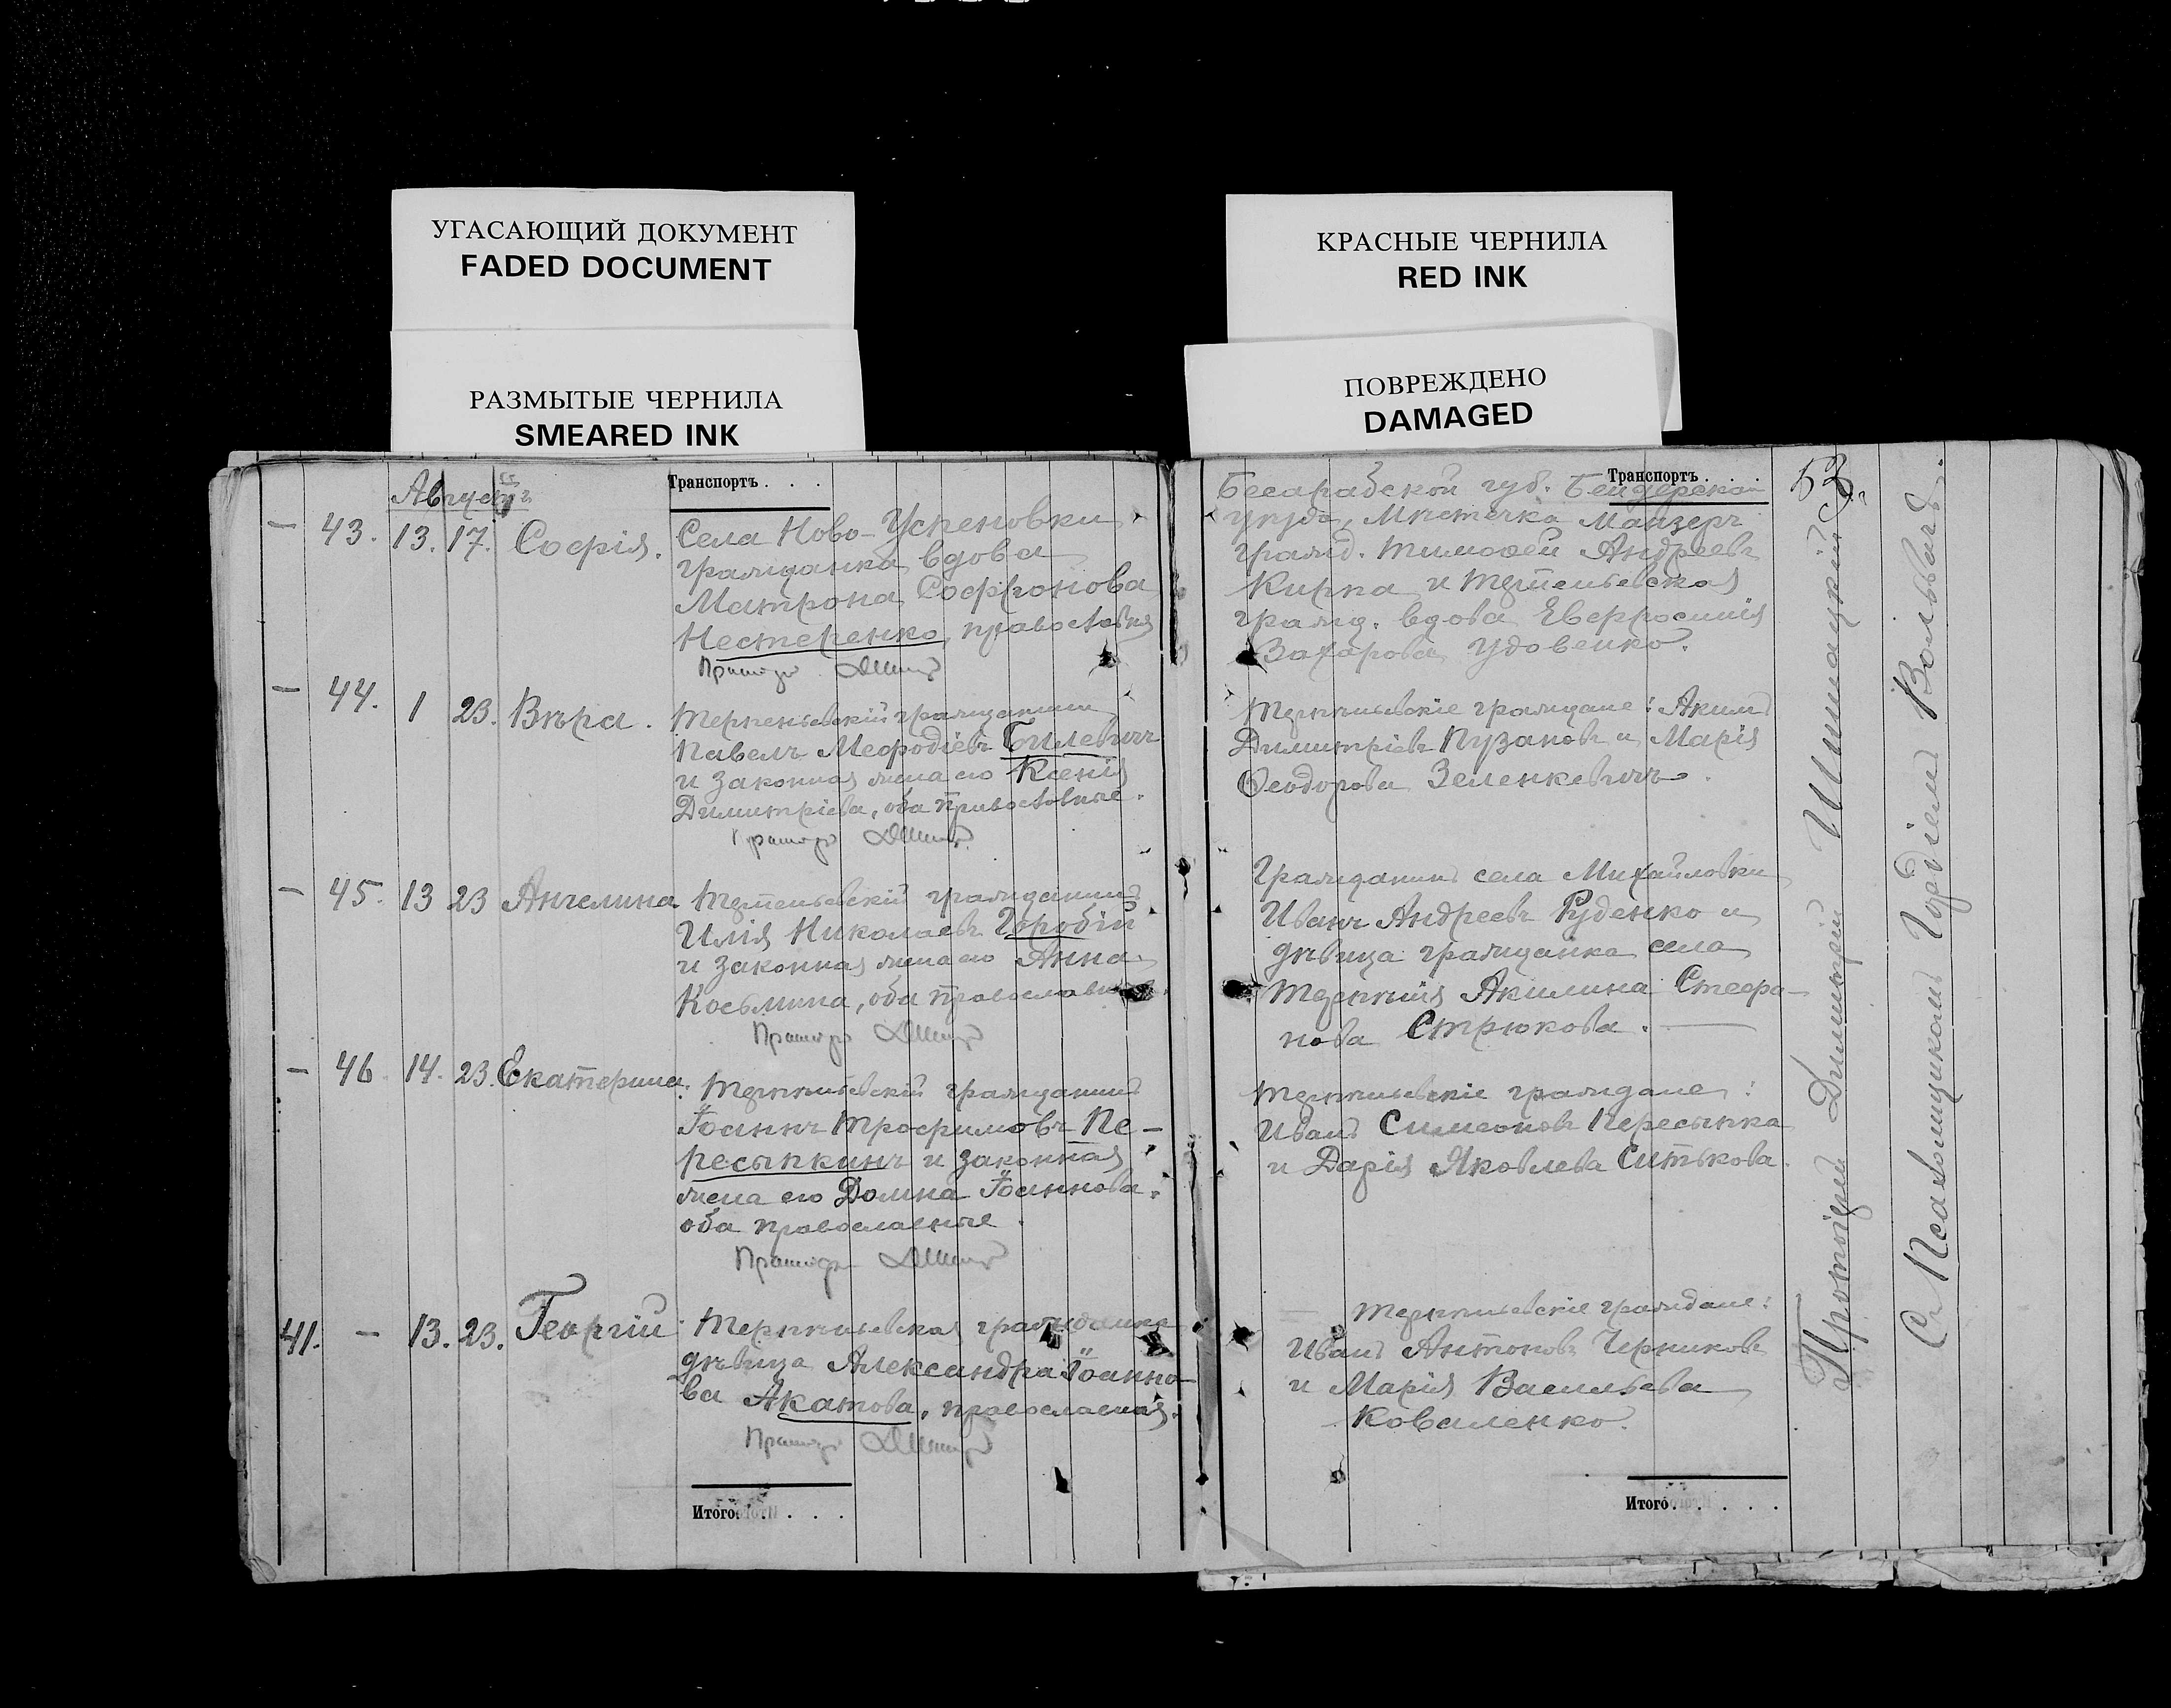 УГАСАЮЩИЙ ДОКУМЕНТ
FADED DOCUMENT
РАЗМЫТЫЕ ЧЕРНИЛА
SMEARED INK
КРАСНЫЕ ЧЕРНИЛА
RED INK
ПОВРЕЖДЕНО
DAMAGED
Августъ
Транспортъ . . .
— 43. 13. 17. Софія. Села Ново-Успеновки
гражданка вдова
Матрона Софронова
Нестеренко, православная
— 44. 1 23. Вѣра. гражданинъ
Павелъ Меѳодіевъ Билевичъ
и законная жена его Ксенія
Димитріева, оба православные.
— 45. 13 23 Ангелина Терпеньевскій гражданинъ
Илія Николаевъ Горобій
и законная жена его Анна
Косьмина, оба православные
— 46. 14. 23. Екатерина. Терпѣньевскій гражданинъ
Іоаннъ Трофимовъ Пе-
ресыпкинъ и законная
жена его Домна Іоаннова,
оба православные.
41. — 13. 23. Георгій Терпѣньевская гражданка
дѣвица Александра Іоанно-
ва Акатова, православная.
Итого. . . . .
Транспортъ . .
53.
Бесарабской губ. Бендерскаго
уѣзда, Мѣстечка Манзеръ
гражд. Тимоѳей Андреевъ
Кирпа и
гражд. вдова Евфросинія
Захарова Удовенко.
Терпѣньевскіе граждане: Акимъ
Димитріевъ Пузановъ и Марія
Ѳеодорова Зеленкевичъ.
Гражданинъ села Михайловки
Иванъ Андреевъ Руденко и
дѣвица гражданка села
Терпѣнія Акилина Стефа-
нова Стрюкова.
Терпѣньевскіе граждане:
Иванъ Симеоновъ Пересыпка
и Дарія Яковлева Ситькова.
Терпѣньевскіе граждане:
Иванъ Антоновъ Черниковъ
и Марія Васильева
Коваленко.
Итого . . . . .
Протоіерей Димитрій
Съ Псаломщикомъ